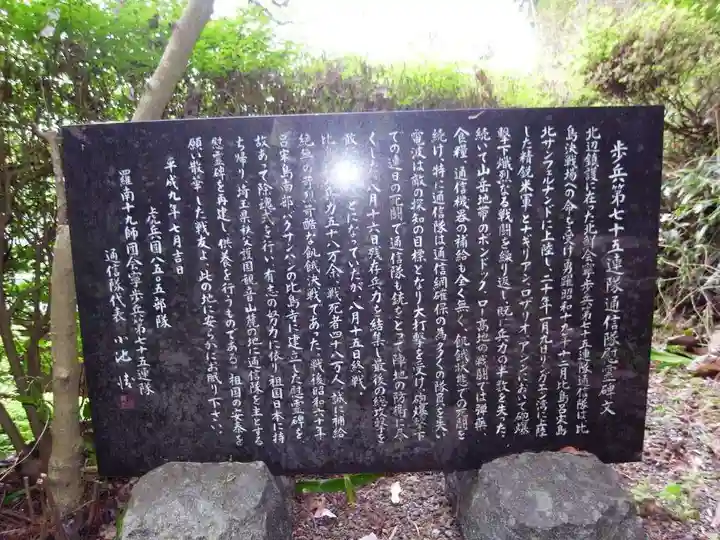 歩兵第七十五連隊通信隊慰霊碑文
北辺鎮護に在った北鮮会寧歩兵第七十五連隊通信隊は比
島決戦場への命を受け勇躍昭和十九年十二月比島呂宋島
北サンフェルナンドに上陸し、二十年一月九日リンガエン湾に上陸
した精鋭米軍とナギリアン、ロザリオ、アシンにおいて砲爆
撃下熾烈なる戦闘を繰り返し、既に兵力の半数を失った。
続いて山岳地帯のボンドック、ロー高地の戦闘では弾薬、
食糧、通信機器の補給も全く無く、飢餓状態での死闘を
続け、特に通信隊は通信網確保の為多くの隊員を失い
電波は敵の探知の目標となり大打撃を受け、砲爆撃下
での連日の死闘で通信隊も銃をとって陣地の防衛に尽
くした。八月十六日残存兵力を結集し最後の総攻撃を
散 ことになっていたが、八月十五日終戦
比 兵力五十八万余、戦死者四十八万人、誠に補給
絶無の 苛酷な飢餓決戦であった。戦後昭和六十年
呂宋島南部バクサンハンの比島寺に建立した慰霊碑を
故あって除魂式を行い、有志の努力に依り祖国日本に持
ち帰り、埼玉県秩父護国観音山麓の地に通信隊を主とする
慰霊碑を再建し、供養を行うものである。祖国の安泰を
願い散華した戦友よ、此の地に安らかにお眠り下さい。
平成九年七月吉日
虎兵団八五〇五部隊
羅南十九師団会寧歩兵第七十五連隊
通信隊代表 小池